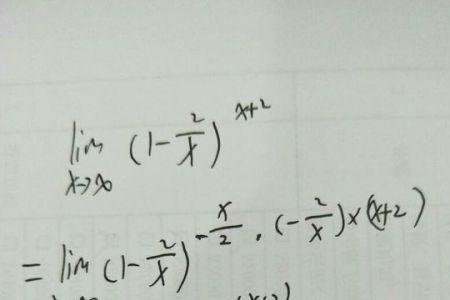 lim (1-2/x)^(x+2)
x→∞
= lim (1-2/x)^(-x/2 · (-2/x)×(x+2))